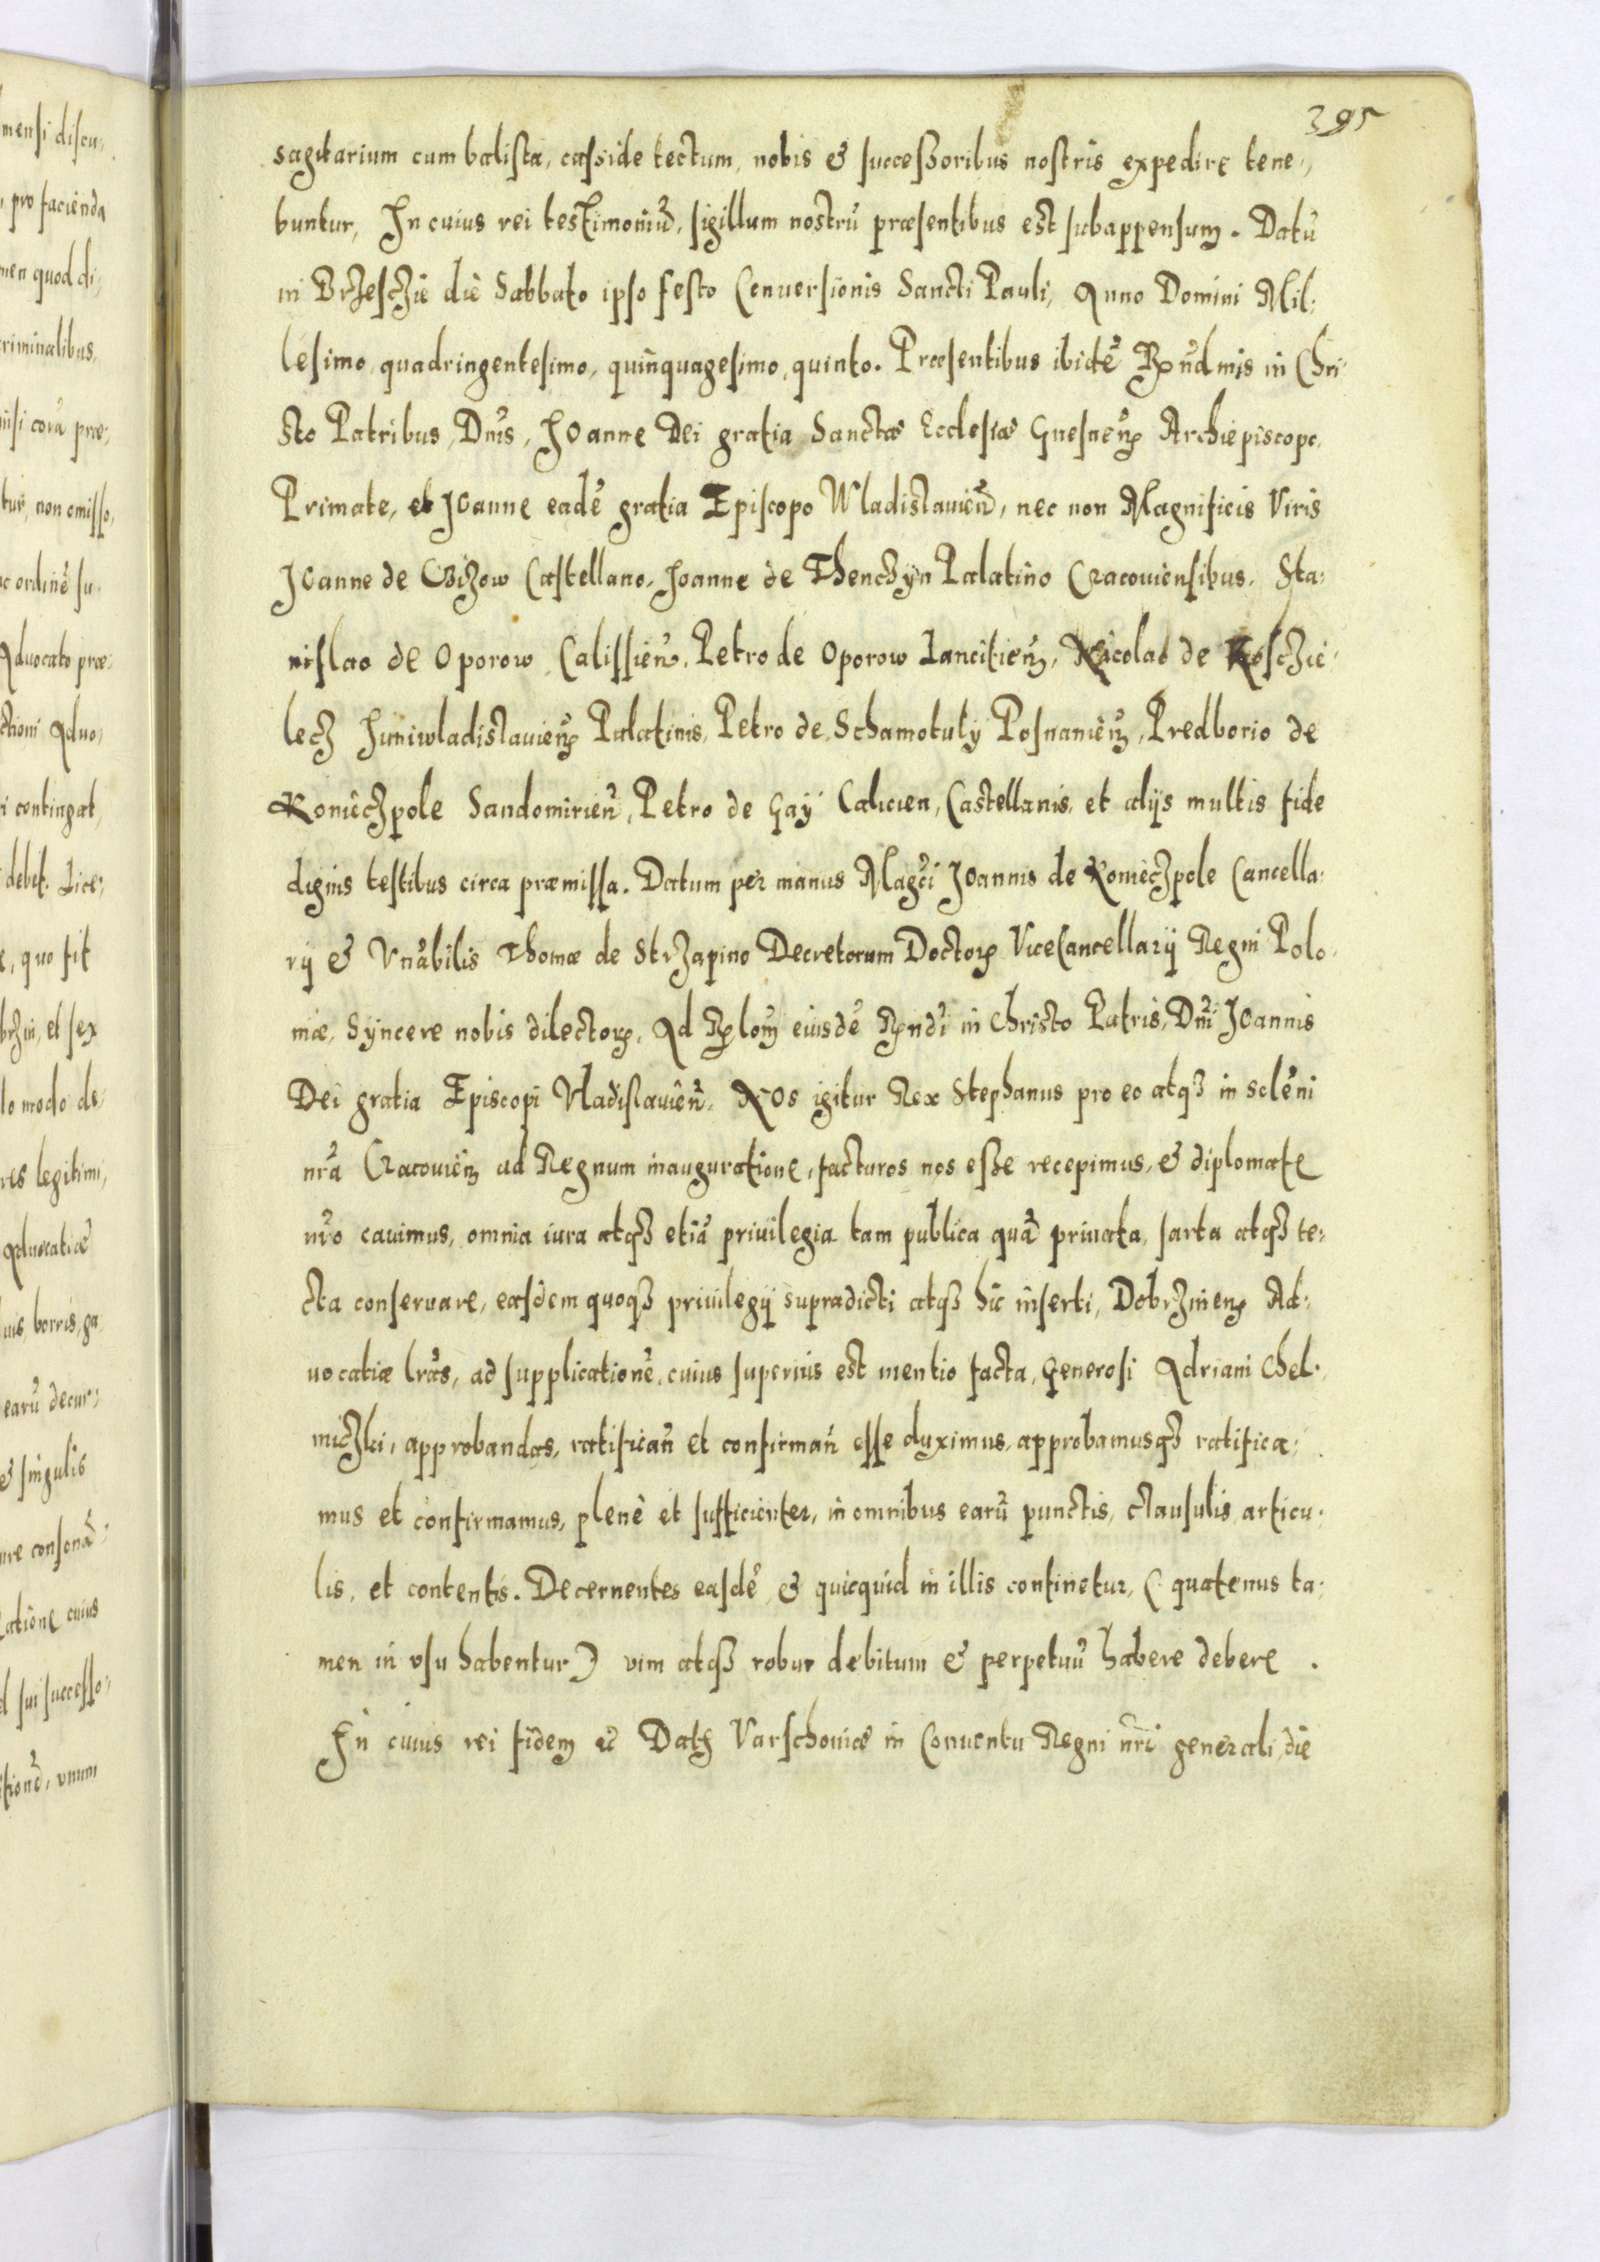 395
sagittarium cum balista, casside tectum, nobis & successoribus nostris expedire tene,
buntur, In cuius rei testimoniũ, sigillum nostrũ præsentibus est subappensum. Datũ
in Brzesczie die Sabbato ipso festo Conuersionis Sancti Pauli, Anno Domini Mil:
lesimo quadringentesimo, quinquagesimo quinto. Præsentibus ibidẽ Rxndmis in Chri:
sto Patribus, Dnis, Joanne Dei gratia Sanctæ Ecclesiæ Gnesneñ Archiepiscopo,
Primate, et Joanne eadẽ gratia Episcopo Wladislauieñ, nec non Magnificis Viris
Joanne de Czizow Castellano, Joanne de Thenczyn Palatino Cracouiensibus. Sta:
nislao de Oporow Calissieñ, Petro de Oporow Lancitieñ, Nicolao de Kosczie:
lecz Juniwladislauieñ Palatinis, Petro de Schamotuly Posnanieñ, Predborio de
Konieczpole Sandomirieñ, Petro de Gay Calicien, Castellanis, et alijs multis fide
dignis testibus circa præmissa. Datum per manus Magci Joannis de Konieczpole Cancella:
rij & Vnãbilis Thomæ de Strzapino Decretorum Doctorꝝ ViceCancellarij Regni Polo:
niæ, Syncere nobis dilectorꝝ, Ad Rxlom eiusdẽ Rxndi in Christo Patris, Dñi Joannis
Dei gratia Episcopi Vladislauieñ. Nos igitur Rex Stephanus pro eo atqꝫ in solẽni
nrã Cracouieñ ad Regnum inauguratione, facturos nos esse recepimus, & diplomate
nr̃o cauimus, omnia iura atqꝫ etiã priuilegia tam publica quã priuata, sarta atqꝫ te:
cta conseruare, easdem quoqꝫ priuilegij supradicti atqꝫ hic inserti, Dobrzineñ Ad:
uocatiæ lrãs, ad supplicationẽ, cuius superius est mentio facta, Generosi Adriani Chel:
miczki, approbandas, ratificañ et confirmañ esse duximus, approbamusqꝫ ratifica:
mus et confirmamus, plenè et sufficienter, in omnibus earũ punctis, clausulis articu:
lis, et contentis. Decernentes easdẽ & quicquid in illis continetur, (quatenus ta:
men in vsu habentur) vim atqꝫ robur debitum & perpetuũ habere debere.
In cuius rei fidem ec̃ Datꝫ Varschouiæ in Conuentu Regni nr̃i generali, die